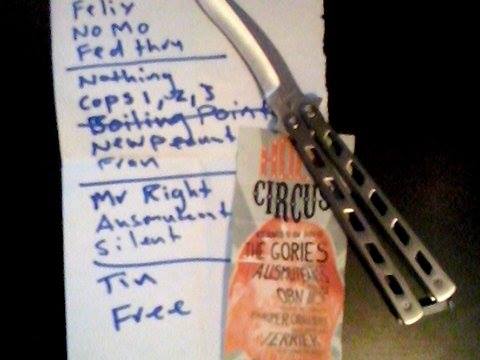 Felix
No Mo
Fed thru
Nothing
Cops 1, 2, 3
Boiling Point
New Peanut
Fran
Mr Right
Ausmuteant
Silent
Tin
Free
CIRCUS
THE GORIES
AUSMUTEANTS